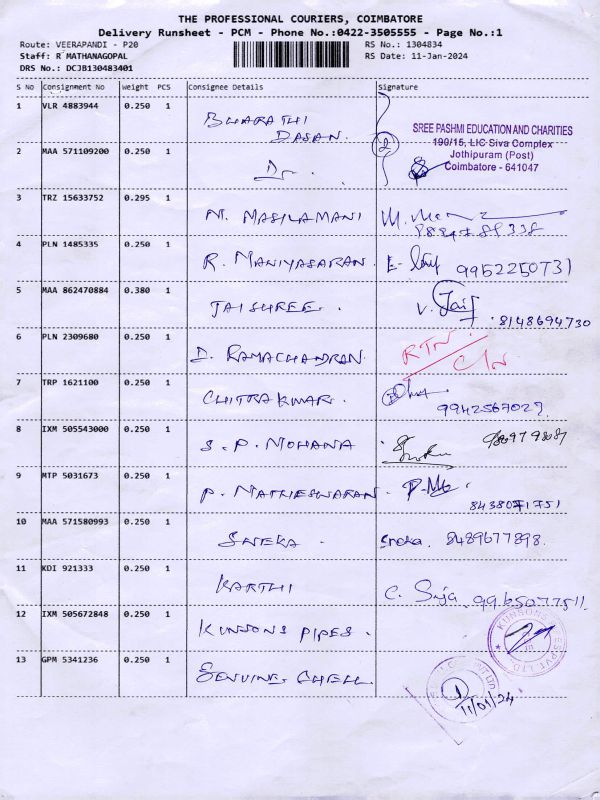 THE PROFESSIONAL COURIERS, COIMBATORE
Delivery Runsheet - PCM - Phone No.:0422-3505555 - Page No.:1
Route: VEERAPANDI - P20
RS No.: 1304834
Staff: R MATHANAGOPAL
RS Date: 11-Jan-2024
DRS No.: DCJB130483401
S No Consignment No Weight PCS Consignee Details Signature
1 VLR 4883944 0.250 1 BHARATHI
DASAN.
2
SREE PASHMI EDUCATION AND CHARITIES
190/15, LIC Siva Complex
Jothipuram (Post)
Coimbatore - 641047
2 MAA 571109200 0.250 1
3 TRZ 15633752 0.295 1 M. MASILAMANI
4 PLN 1485335 0.250 1 R. MANIYASARAN. 9952250731
5 MAA 862470884 0.380 1 JAISHREE. V. Jai 8148694730
6 PLN 2309680 0.250 1 D. RAMACHANDRAN. RTN
7 TRP 1621100 0.250 1 CHITRAKUMAR. 9942567029
8 IXM 505543000 0.250 1 S. P. MOHANA
9 MTP 5031673 0.250 1 P. MATHESWARAN. 8438071751
10 MAA 571580993 0.250 1 SNEKA. Sneka. 8489677898.
11 KDI 921333 0.250 1 KARTHI C. Suja. 9965077511
12 IXM 505672848 0.250 1 KUNSONS PIPES.
13 GPM 5341236 0.250 1 GENUINE SHELL
1
11/01/24